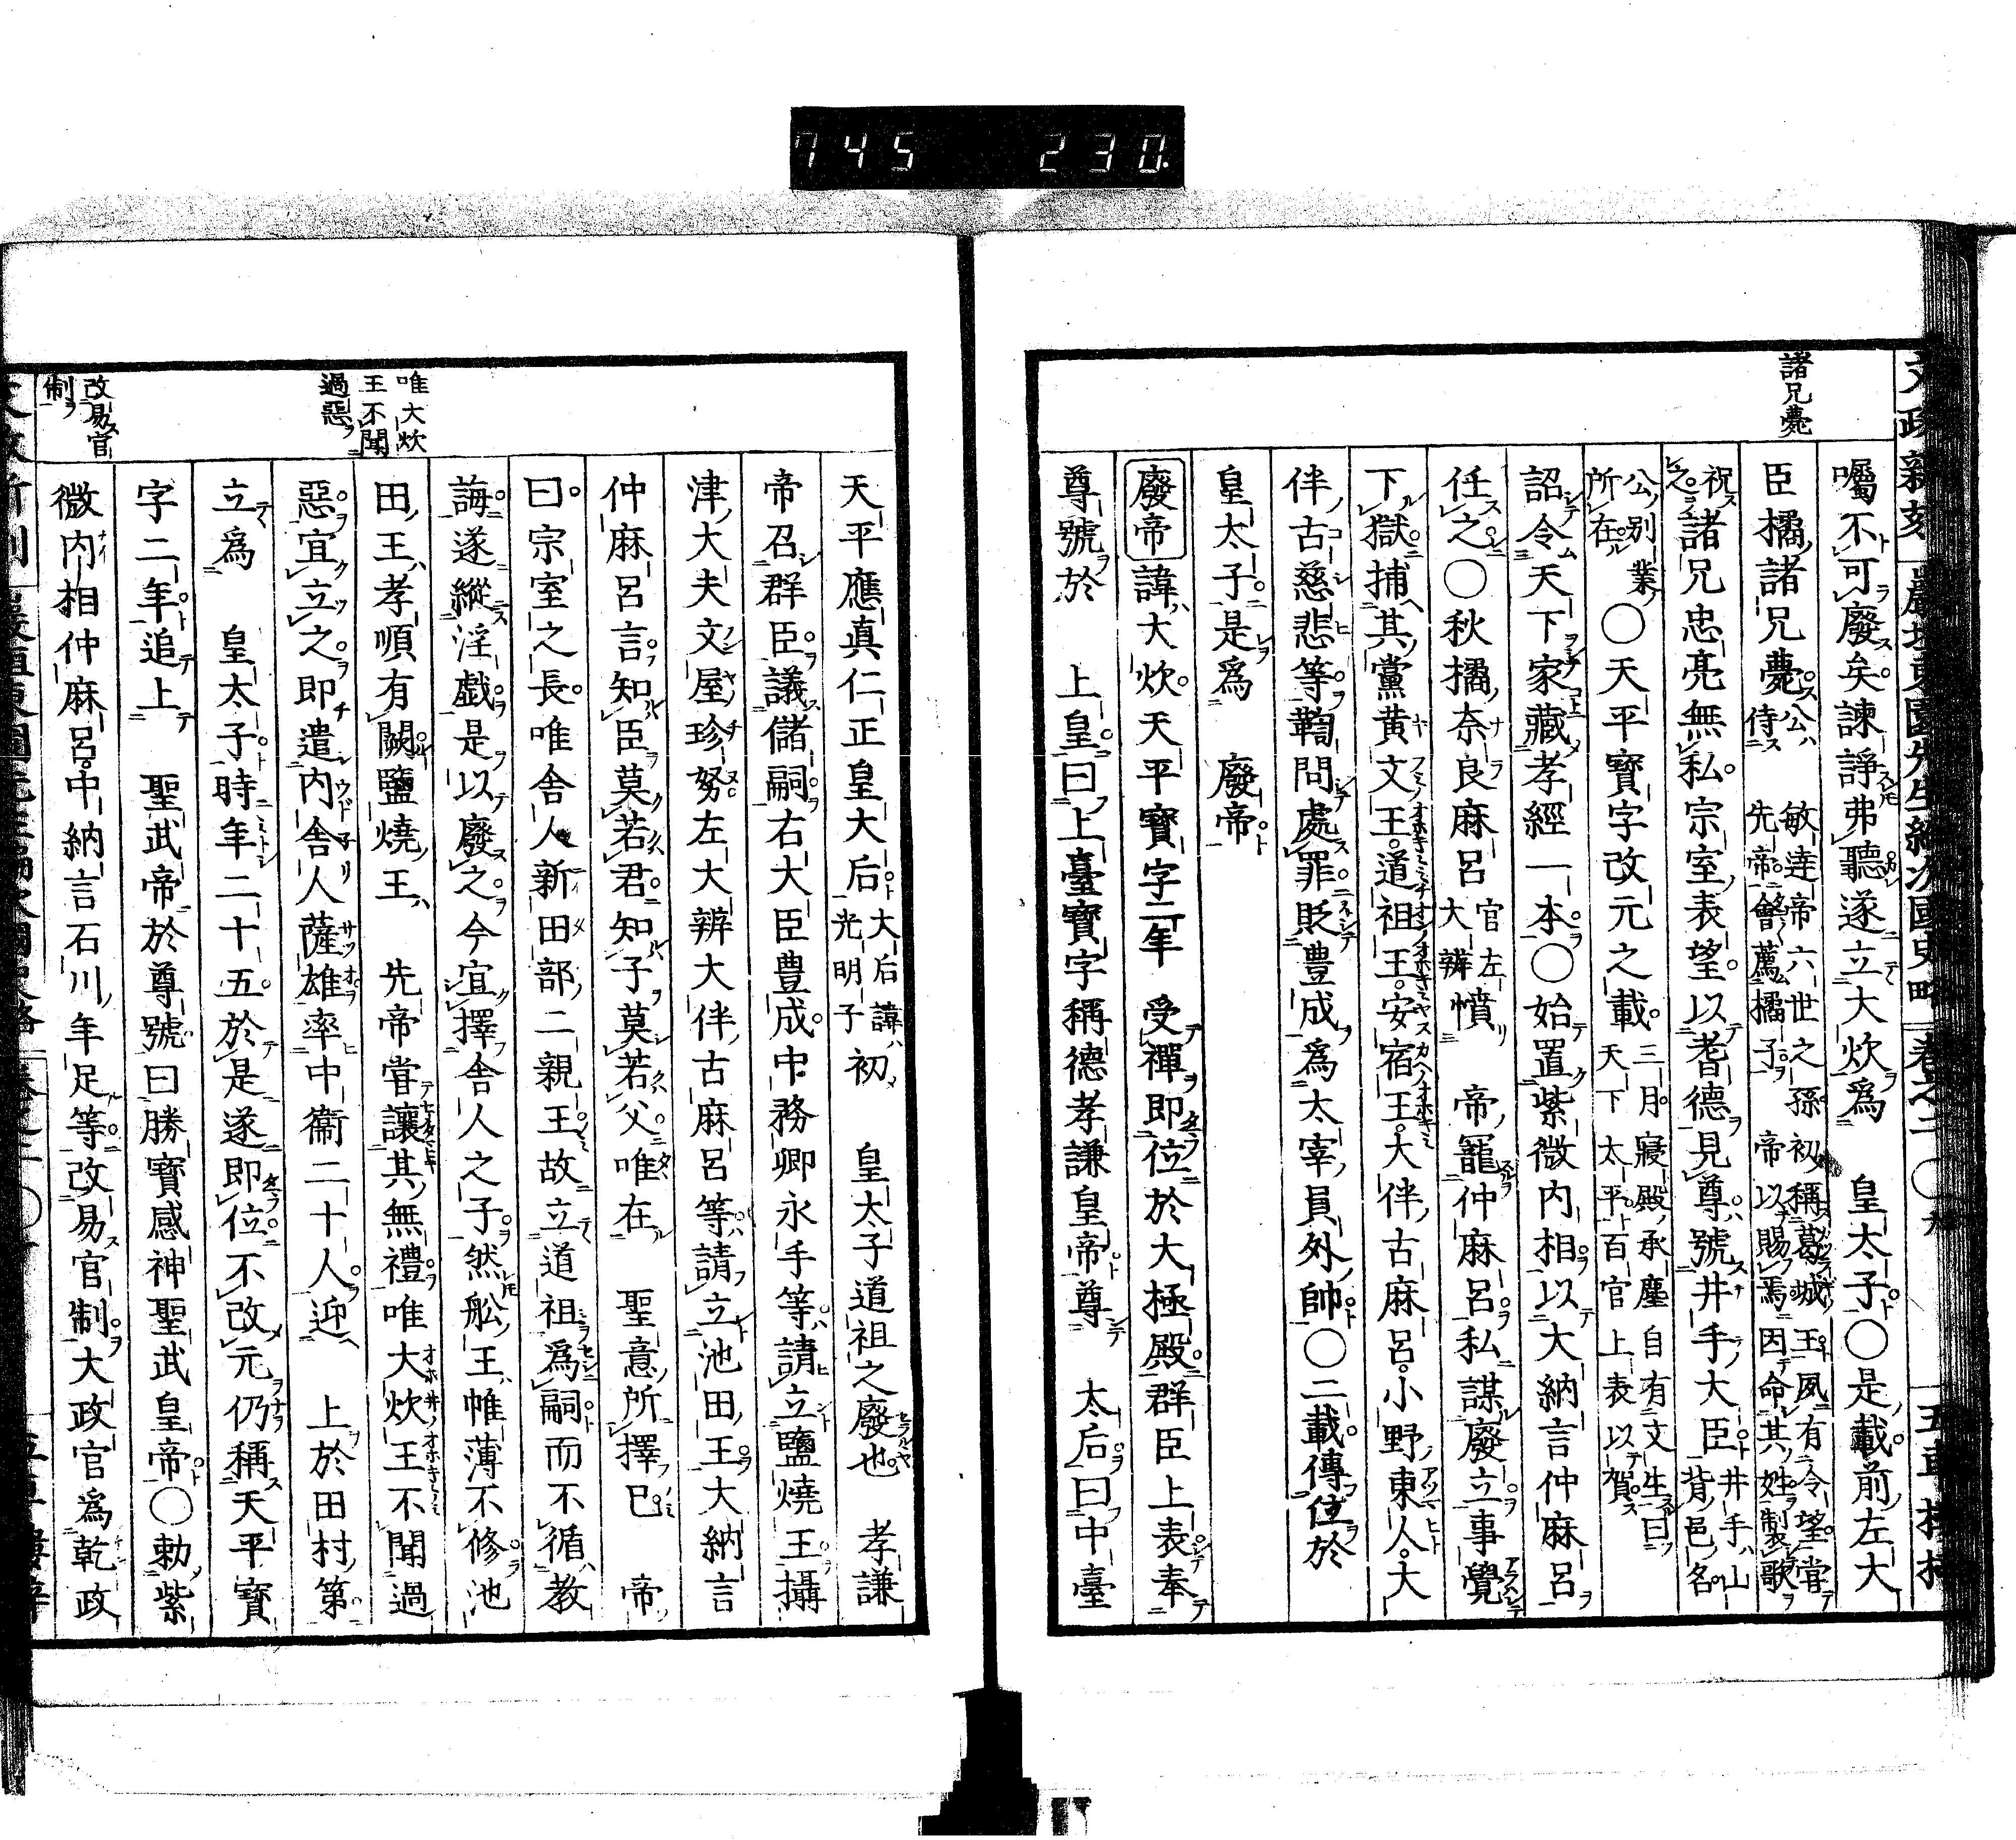 745 230
諸兄薨
囑不可廢矣諫諍弗聽遂立大炊爲 皇太子〇是載前左大
臣橘諸兄薨公ハ敏達帝六世之孫初稱葛城王夙有令望嘗侍先帝會薦橘子帝以賜焉因命其姓製歌
祝之諸兄忠亮無私宗室表望以耆德見尊號井手大臣井手山背邑名
公別業所在〇天平寶字改元之載三月寢殿承塵自有文生曰天下太平百官上表以賀
詔令天下家藏孝經一本〇始置紫微内相以大納言仲麻呂
任之〇秋橘奈良麻呂官左大辨憤 帝寵仲麻呂私謀廢立事覺
下獄捕其黨黄文王道祖王安宿王大伴古麻呂小野東人大
伴古慈悲等鞫問處罪貶豊成爲太宰員外帥〇二載傳位於
皇太子是爲 廢帝
廢帝諱大炊天平寶字二年 受禪即位於大極殿群臣上表奉
尊號於 上皇曰上臺寶字稱德孝謙皇帝尊 太后曰中臺
唯大炊王不聞過惡
改易官制
天平應真仁正皇大后大后諱光明子初 皇太子道祖之廢也 孝謙
帝召群臣議儲嗣右大臣豊成中務卿永手等請立鹽燒王攝
津大夫文屋珍努左大辨大伴古麻呂等請立池田王大納言
仲麻呂言知臣莫若君知子莫若父唯在 聖意所擇已 帝
曰宗室之長唯舎人新田部二親王故立道祖爲嗣而不循教
誨遂縱淫戯是以廢之今宜擇舎人之子然舩王帷薄不修池
田王孝順有闕鹽燒王 先帝嘗讓其無禮唯大炊王不聞過
惡宜立之即遣内舎人薩雄率中衞二十人迎 上於田村第
立爲 皇太子時年二十五於是遂即位不改元仍稱天平寶
字二年追上 聖武帝於尊號曰勝寶感神聖武皇帝〇勅紫
微内相仲麻呂中納言石川年足等改易官制大政官爲乾政